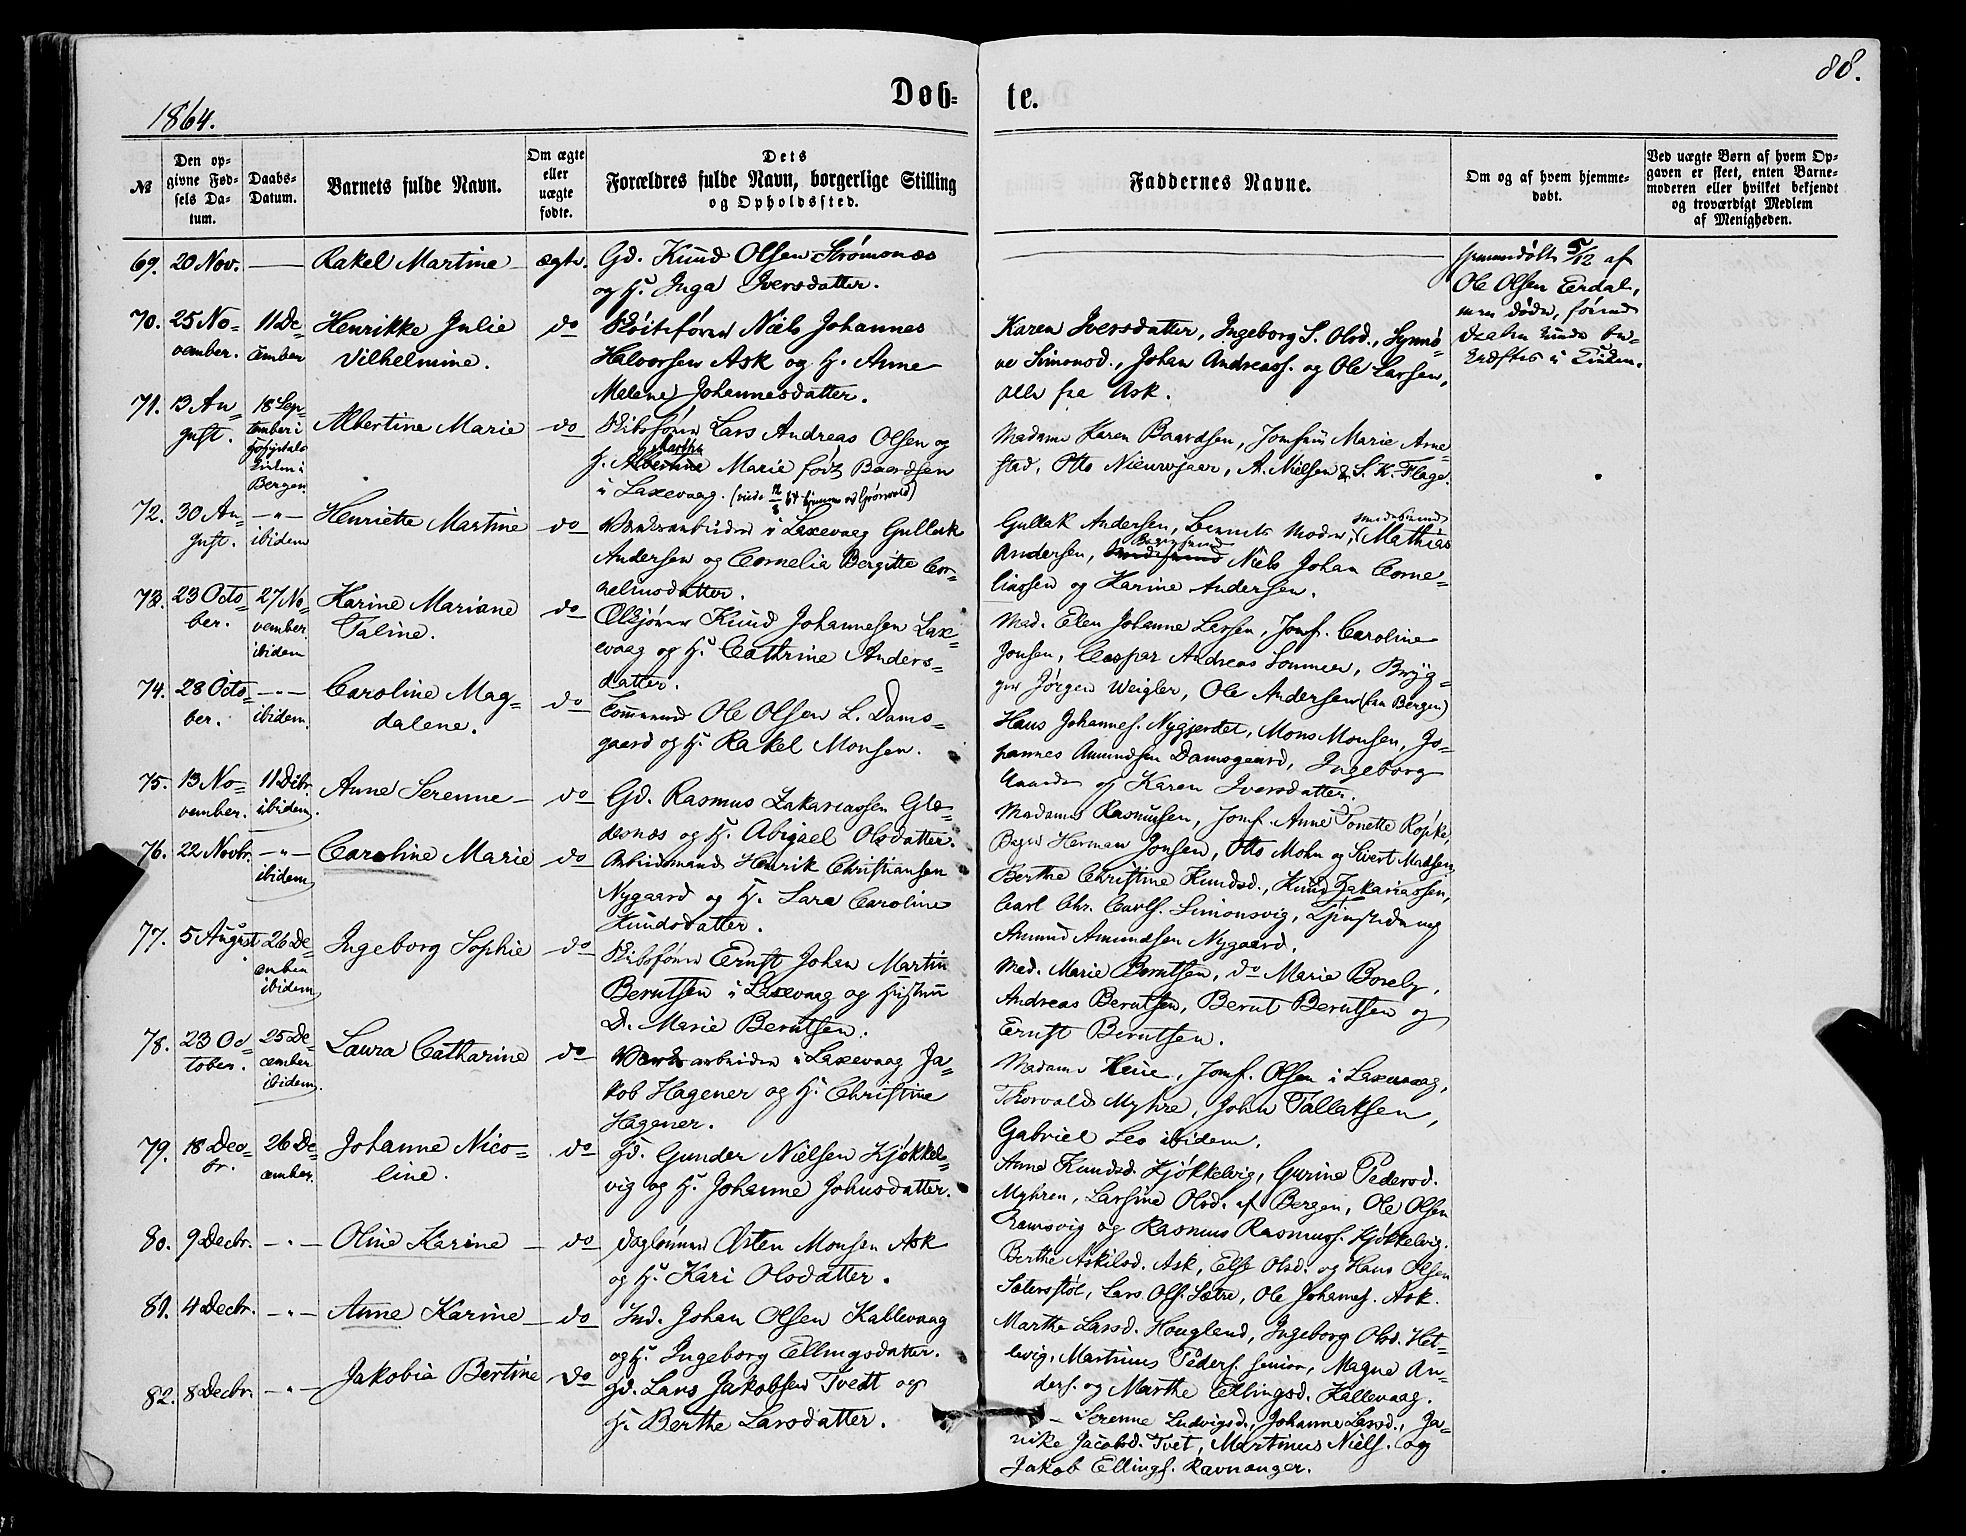 88.
Døb- te.
1864.
№
Den op-
givne Fød-
sels Da-
tum.
Daabs-
Datum.
Barnets fulde Navn.
Om ægte
eller
uægte
fødte.
Dets
Forældres fulde Navn, borgerlige Stilling
og Opholdssted.
Faddernes Navne.
Om og af hvem hjemme-
døbt.
Ved uægte Børn af hvem Op-
gaven er skeet, enten Barne-
moderen eller hvilket bekjendt
og troværdigt Medlem
af Menigheden.
69. 20 Nov. — Rakel Martine ægte. Gd. Knud Olsen Strømsnæs
og H. Inga Iversdatter.
Hjemmedøbt 5/12 af
Ole Olsen Erdal,
men døde, førend
Daaben kunde be-
kræftes i Kirken.
70. 25 No-
vember.
11 De-
cember
Henrikke Julie
Vilhelmine.
do
Skøitefører Niels Johannes
Halvorsen Ask og H. Anne
Melene Johannesdatter.
Karen Iversdatter, Ingeborg S. Olsd., Synnø-
ve Simonsd., Johan Andreass. og Ole Larsen,
alle fra Ask.
71. 13 Au-
gust.
18 Sep-
tember i
Hospitals
Kirken i
Bergen
Albertine Marie
do
Skibsfører Lars Andreas Olsen og
Martha
H. Albertine Marie født Baardsen
i Laxevaag.
Madame Karen Baardsen, Jomfru Marie Arne-
stad, Otto Nieuwejaar, A. Nielsen & S. K. Flage.
72. 30 Au-
gust.
-"-
ibidem
Henriette Martine
do
Værksarbeider i Laxevaag Gullak
Andersen og Cornelia Bergitte Cor-
neliusdatter.
Gullak Andersen, Barnets Moder, Smedesvend Mathias
Andersen, Bagersvend Niels Johan Corne-
liussen og Karine Andersen.
73. 23 Octo-
ber.
27 No-
vember
ibidem
Karine Mariane
Taline.
do
Opsynsm. Knud Johannesen Lax-
evaag og H. Cathrine Anders-
datter.
Mad. Elen Johanne Larsen, Jomf. Caroline
Jonsen, Caspar Andreas Sommer, Bryg-
ger Jørgen Weigler, Ole Andersen (fra Bergen)
74. 28 Octo-
ber.
-"-
ibidem
Caroline Mag-
dalene.
do
Ole Olsen L. Dams-
gaard og H. Rakel Monsen.
Hans Johanness. Nygjerdet, Mons Monsen, Jo-
hannes Amundsen Damsgaard, Ingeborg
og Karen Iversdatter.
75. 13 No-
vember.
11 Decbr.
ibidem.
Anne Serenne
do
Gd. Rasmus Zakariassen Gla-
desnæs og H. Abigael Olsdatter.
Madame Rasmussen, Jomf. Anne Tonette Röpke,
Bager Herman Jonsen, Otto Mohn og Sivert Madsen
76. 22 Novbr.
-"-
ibidem
Caroline Marie
do
Arbeidsmand Henrik Christiansen
Nygaard og H. Sara Caroline
Knudsdatter.
Berthe Christine Knudsd., Knud Zakariassen,
Carl Chr. Carls. Simonsvig, Tjenestedreng
Amund Amundsen Nygaard.
77. 5 August
26 De-
cember
ibidem
Ingeborg Sophie
do
Skibsfører Ernst Johan Martin
Berntsen i Laxevaag og Hustru
D. Marie Berntsen.
Mad. Marie Berntsen, do Marie Boseby,
Andreas Berntsen, Bernt Berntsen og
Ernst Berntsen.
78. 23 Oc-
tober.
25 De-
cember
ibidem.
Laura Catharine
do
Værksarbeider i Laxevaag Ja-
kob Hagener og H. Christine
Hagener.
Madame Heie, Jomf. Olsen i Laxevaag,
Thorvald Myhre, John Tallaksen,
Gabriel Leo ibidem.
79. 18 Dec-
br.
26 De-
cember.
Johanne Nico-
line.
do
Gd. Gunder Nielsen Kjøkkel-
vig og H. Johanne Johnsdatter.
Anne Knudsd. Kjøkkelvig, Gurine Pedersd.
Myhren, Larsine Olsd. af Bergen, Ole Olsen
Ramsvig og Rasmus Rasmuss. Kjøkkelvig.
80. 9 Decbr. -"- Oline Karine do Daglønner Østen Monsen Ask
og H. Kari Olsdatter.
Berthe Askilsd. Ask, Else Olsd. og Hans Olsen
Sæterstøl, Lars Ols. Sætre, Ole Johannes. Ask.
81. 4 Decbr. -"- Anne Karine do Ind. Johan Olsen Kallevaag
og H. Ingeborg Ellingsdatter.
Marthe Larsd. Hougland, Ingeborg Olsd. Het-
levig, Martinus Peders. senior, Magne An-
ders. og Marthe Ellingsd. Kallevaag.
82. 8 Decbr. -"- Jakobia Bertine do Gd. Lars Jakobsen Tvedt og
H. Berthe Larsdatter.
Serenne Ludvigsd., Johanne Larsd., Ja-
nike Jacobsd. Tvet, Martinus Niels. og
Jakob Ellings. Ravnanger.